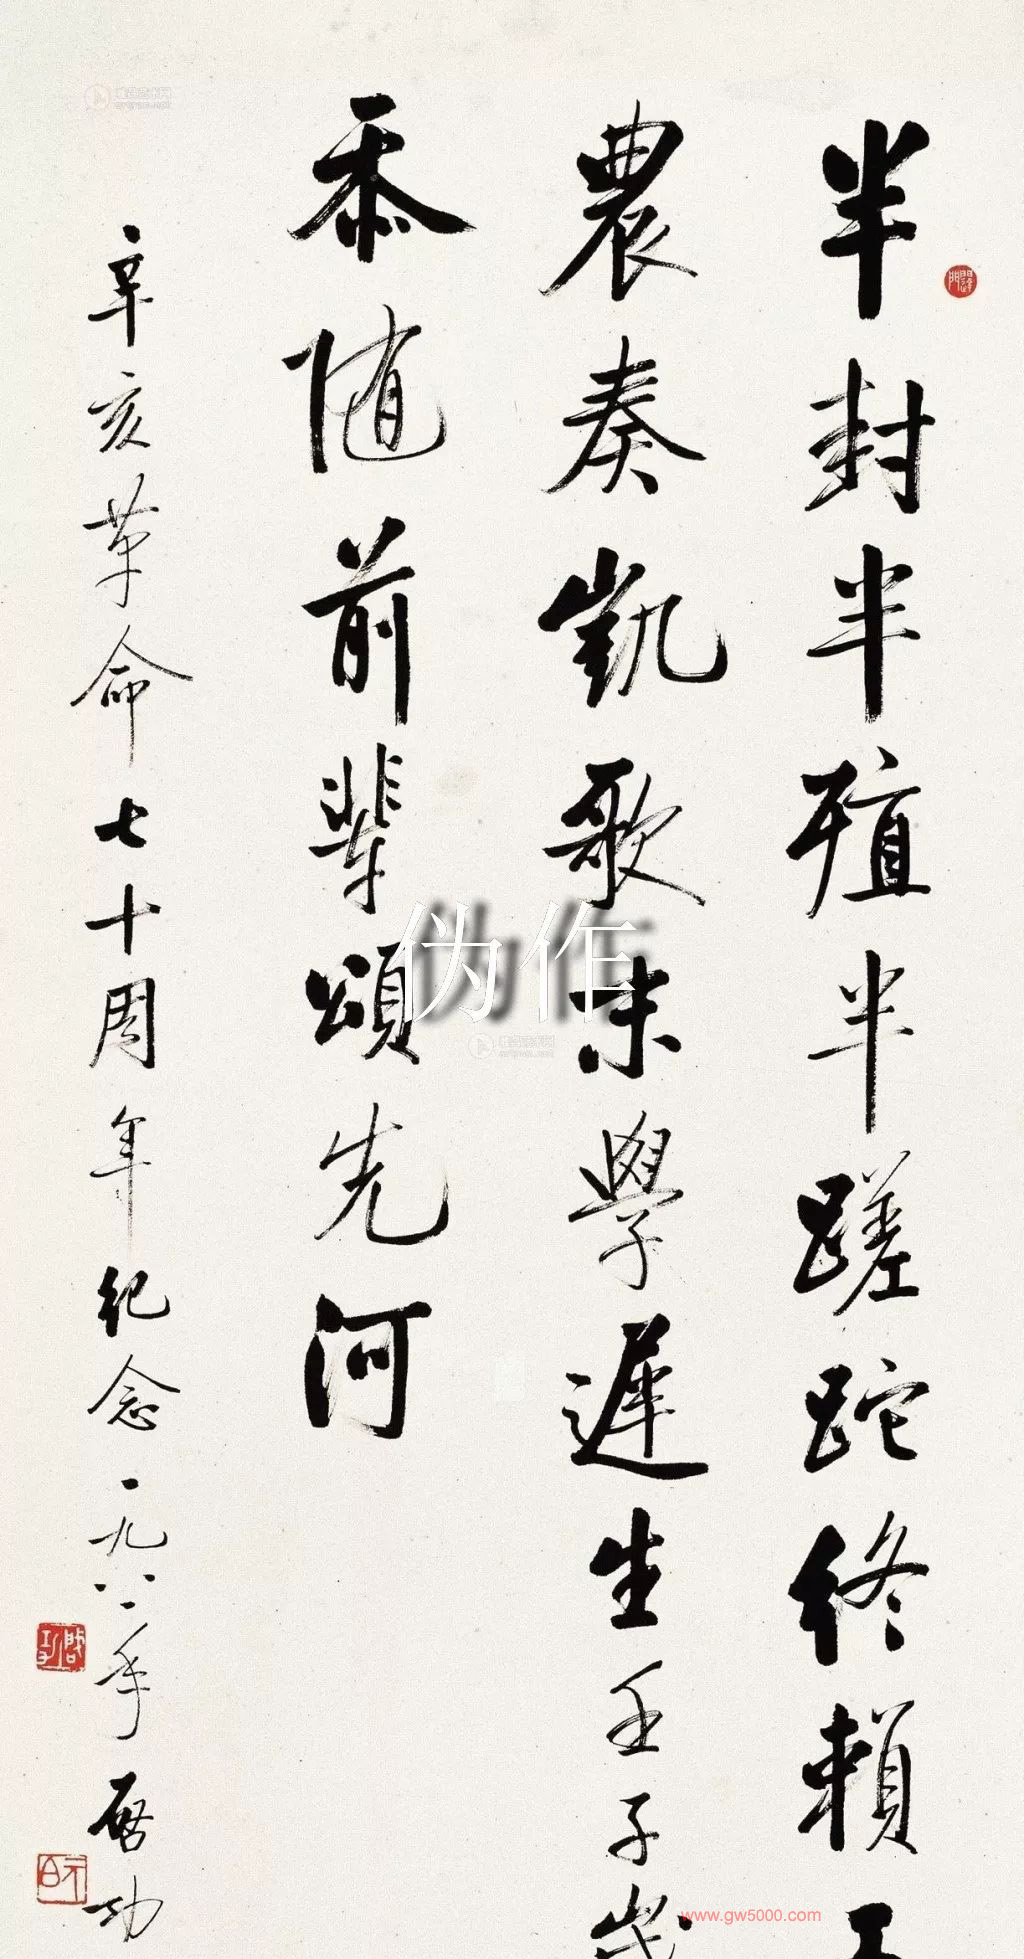 半封半殖半蹉跎终賴工
農奏凱歌末學遲生壬子歲
忝随前輩頌先河
辛亥革命七十周年纪念一九八一年启功
伪作
www.gw5000.com
启功
元白